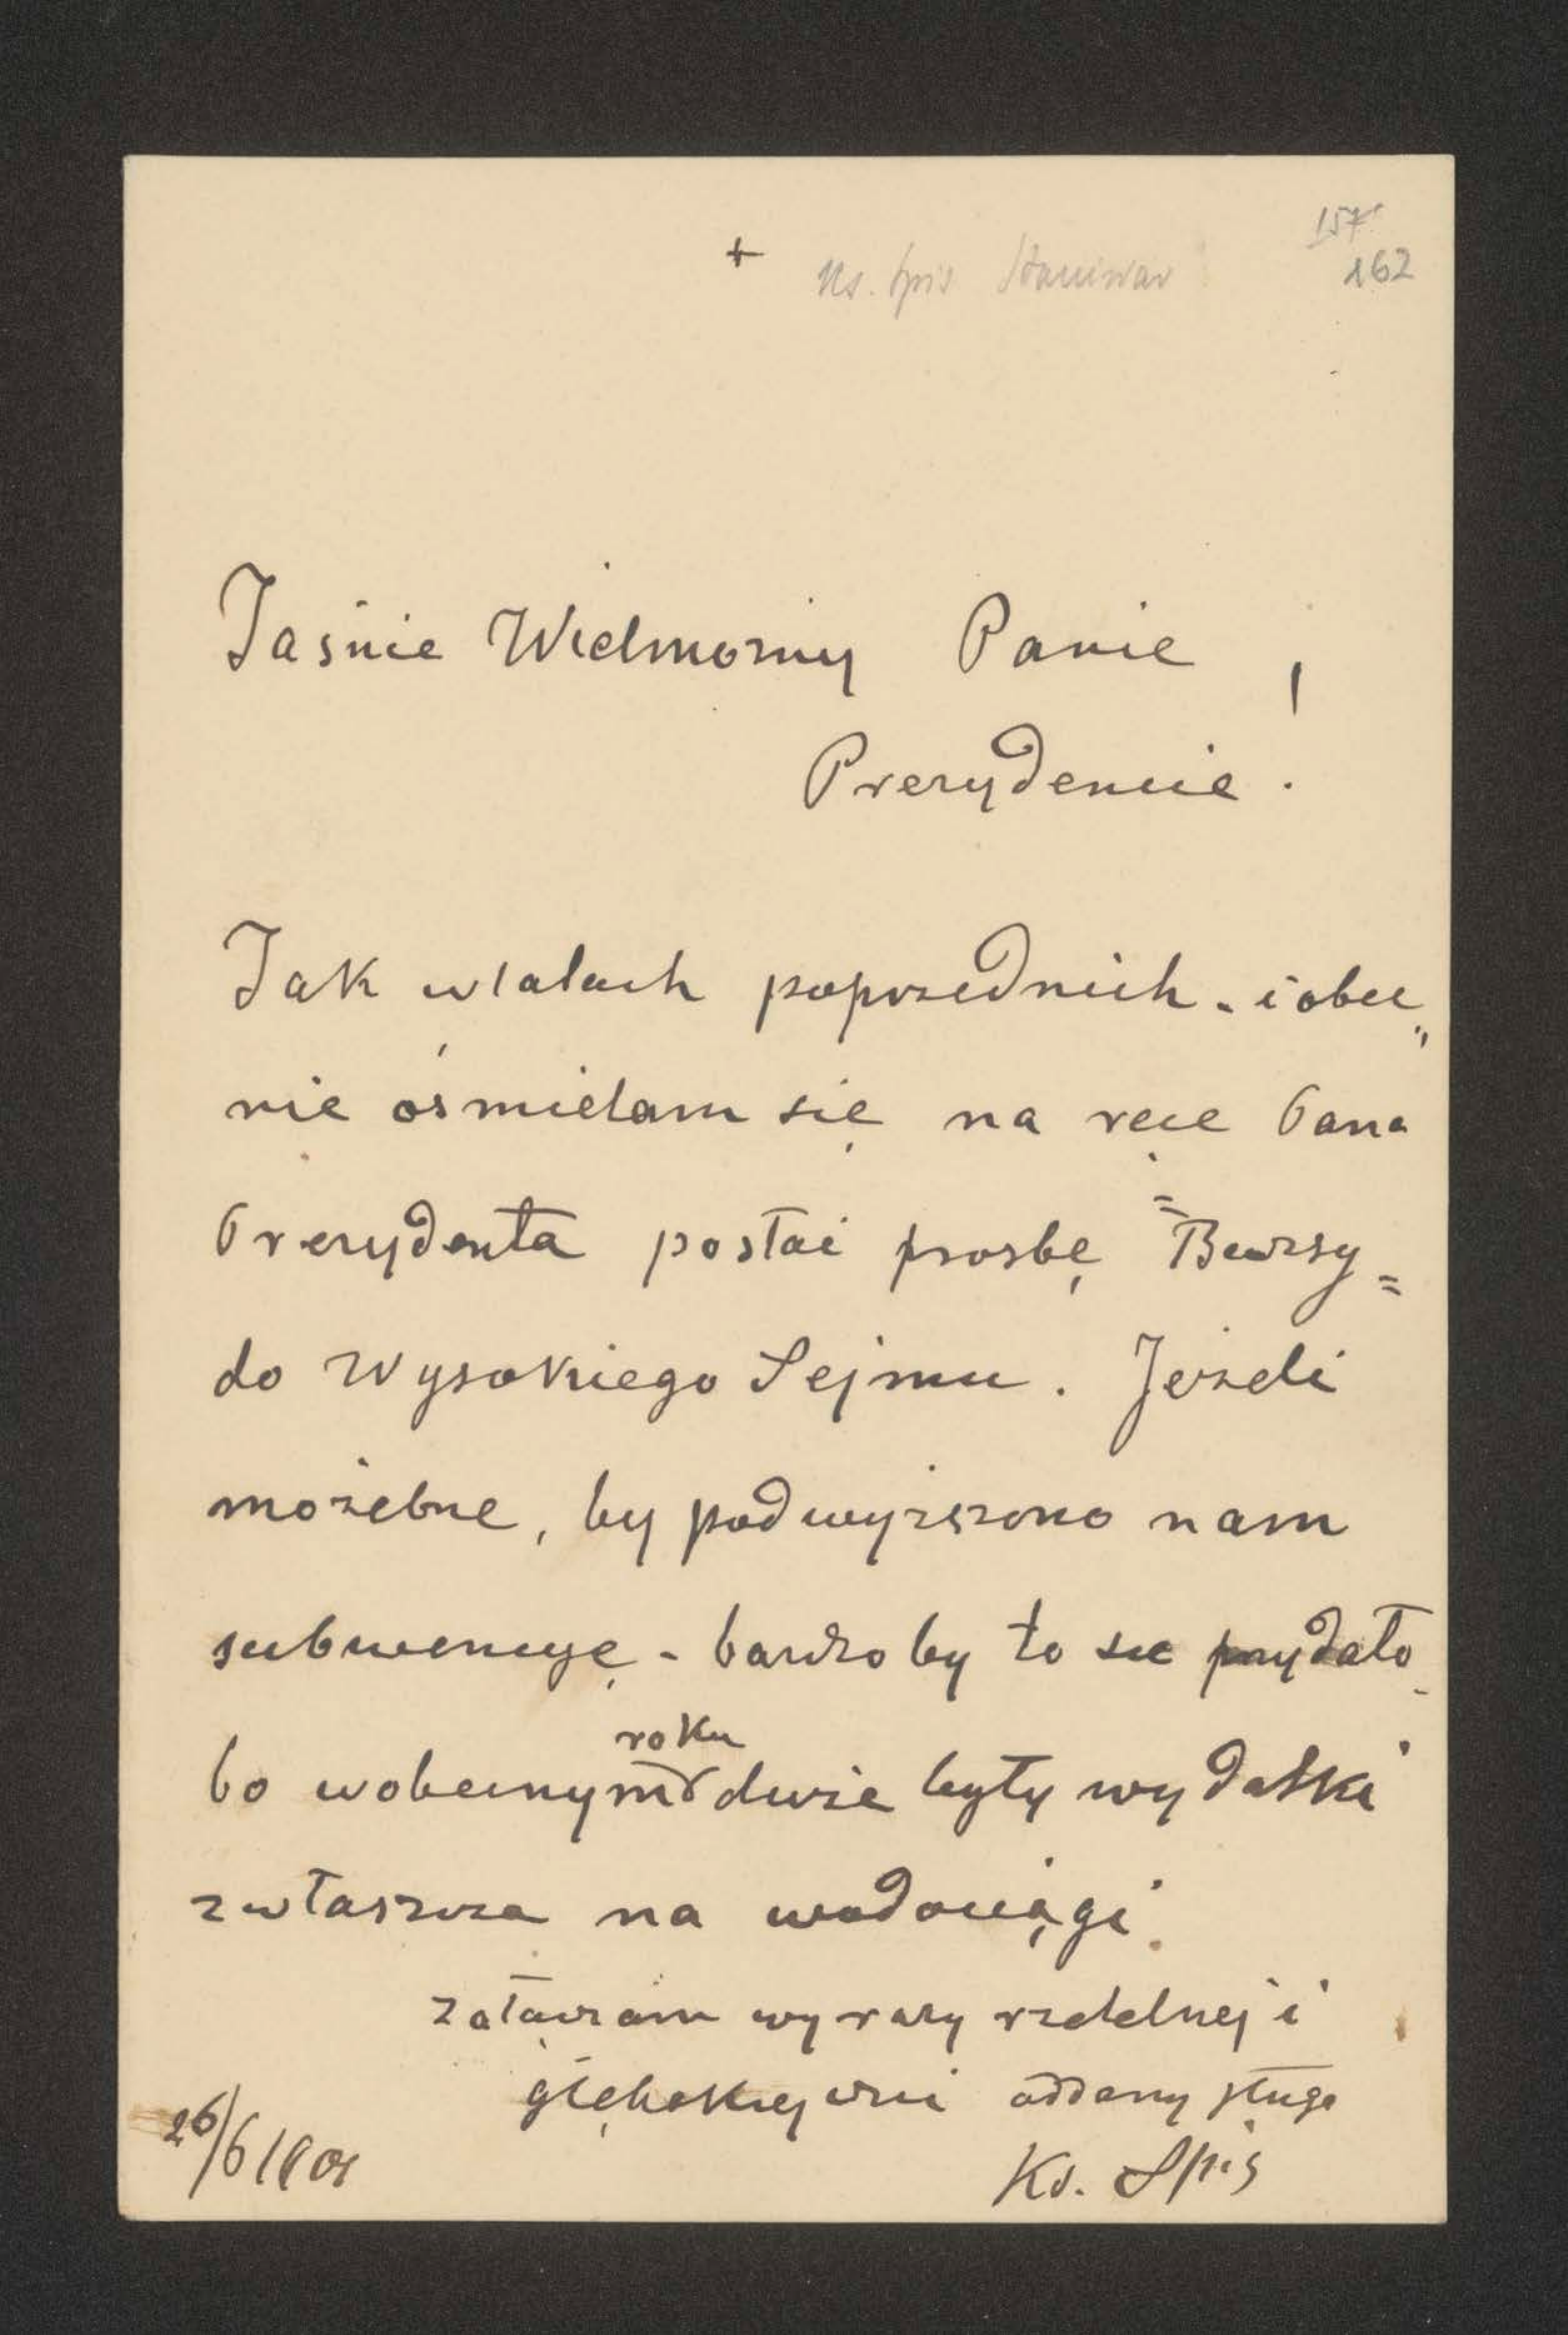 157
+ Ks. Spis Stanisław 162
Jaśnie Wielmożny Panie
Prezydencie!
Jak w latach poprzednich - i obec„
nie ośmielam się na ręce Pana
Prezydenta posłać prośbę Bursy
do Wysokiego Sejmu. Jeżeli
możebne, by podwyższono nam
subwencyę - bardzo by to się przydało
bo w obecnym roku duże były wydatki
zwłaszcza na wodociągi.
Załączam wyrazy rzetelnej i
głębokiej czci oddany sługa
26/6 1901
Ks. Spis